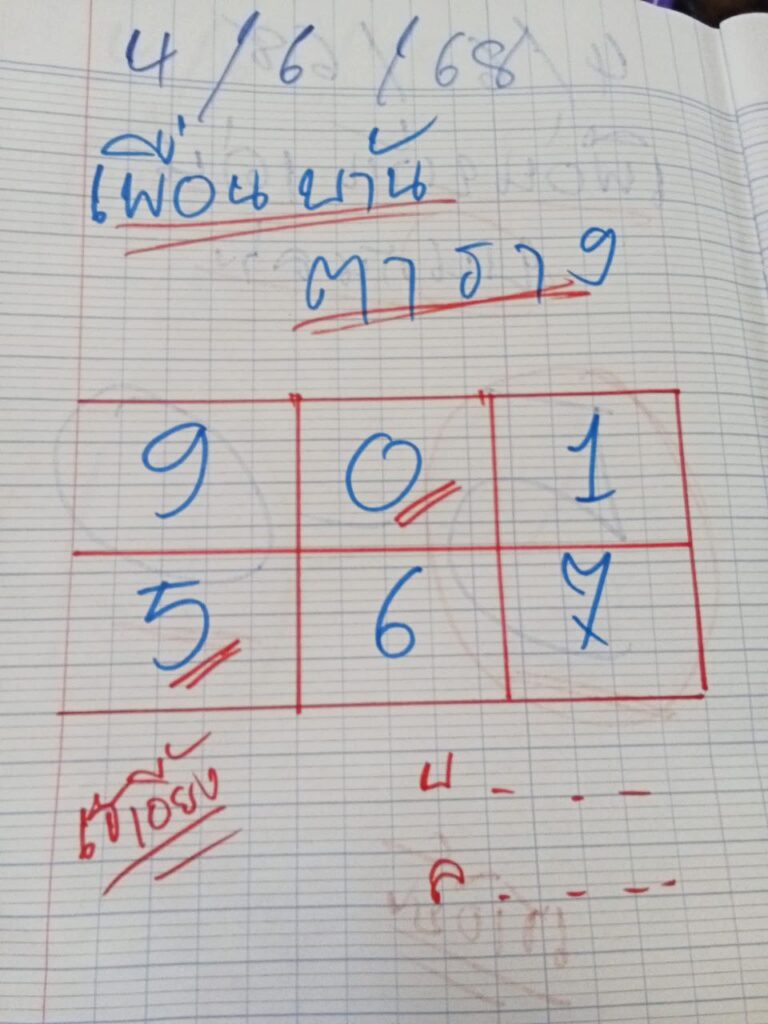 4/6/68
เพื่อนบ้าน
ตาราง
9 0 1
5 6 7
บ - - -